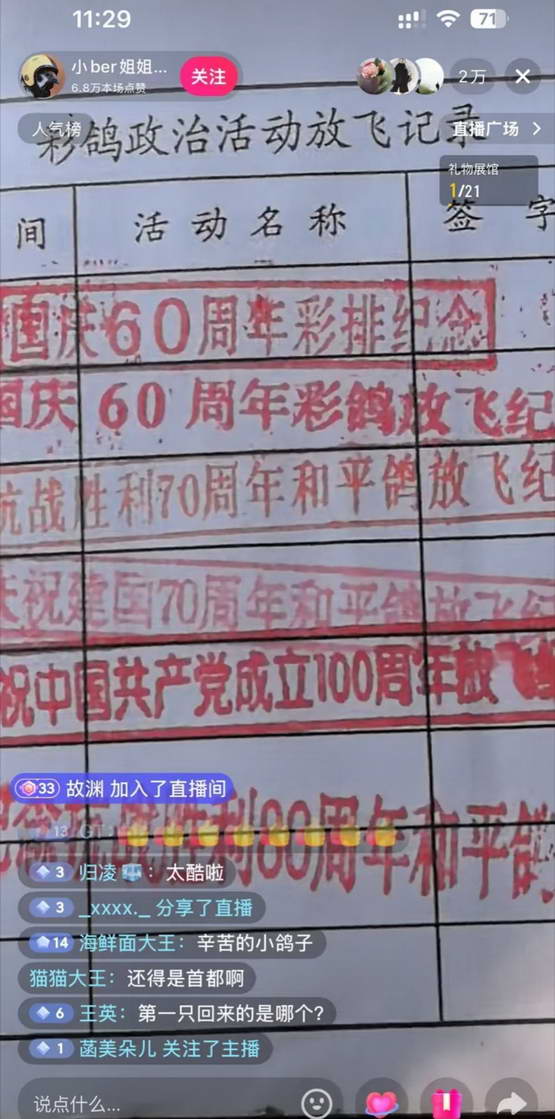 11:29
71
小ber姐姐...
6.8万本场点赞
关注
2万
人气榜
直播广场
彩鸽政治活动放飞记录
礼物展馆
1/21
间 活动名称 签字
国庆60周年彩排纪念
国庆60周年彩鸽放飞纪
抗战胜利70周年和平鸽放飞纪
庆祝建国70周年和平鸽放飞纪
祝中国共产党成立100周年放
33 故渊 加入了直播间
胜利80周年和平鸽
13 GT:
3 归凌: 太酷啦
3 _xxxx._ 分享了直播
14 海鲜面大王: 辛苦的小鸽子
猫猫大王: 还得是首都啊
6 王英: 第一只回来的是哪个?
1 菡美朵儿 关注了主播
说点什么...